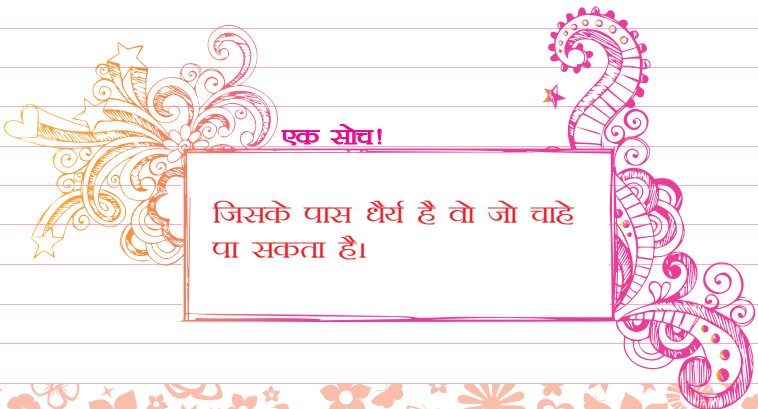 एक सोच!
जिसके पास धैर्य है वो जो चाहे
पा सकता है।